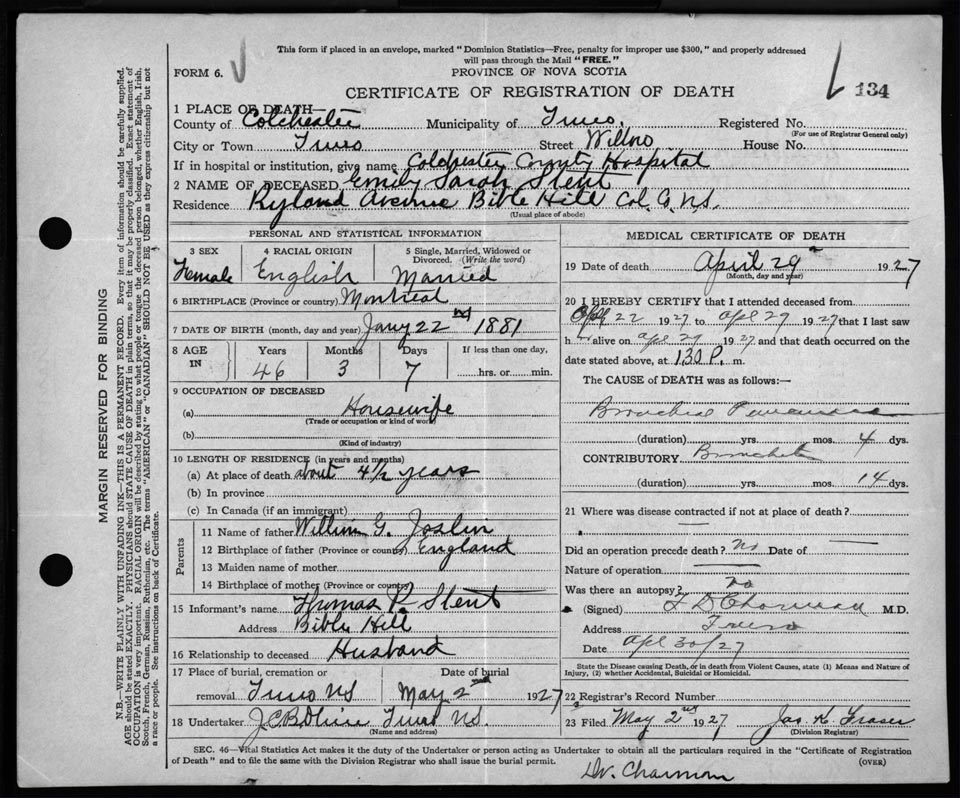 This form if placed in an envelope, marked "Dominion Statistics—Free, penalty for improper use $300," and properly addressed
will pass through the Mail "FREE."
FORM 6.
PROVINCE OF NOVA SCOTIA
134
CERTIFICATE OF REGISTRATION OF DEATH
1 PLACE OF DEATH—
County of Colchester Municipality of Truro. Registered No.
(For use of Registrar General only)
City or Town Truro Street Willow House No.
If in hospital or institution, give name Colchester County Hospital
2 NAME OF DECEASED Emily Sarah Stent
Residence Ryland Avenue Bible Hill Col. Co. N.S.
(Usual place of abode)
PERSONAL AND STATISTICAL INFORMATION
3 SEX 4 RACIAL ORIGIN 5 Single, Married, Widowed or
Divorced. (Write the word)
Female English Married
6 BIRTHPLACE (Province or country) Montreal
7 DATE OF BIRTH (month, day and year) Jany 22nd 1881
8 AGE IN Years Months Days If less than one day,
46 3 7 hrs. or min.
9 OCCUPATION OF DECEASED
(a) Housewife
(Trade or occupation or kind of work)
(b)
(Kind of industry)
10 LENGTH OF RESIDENCE (in years and months)
(a) At place of death about 4½ years
(b) In province
(c) In Canada (if an immigrant)
Parents
11 Name of father William G. Joslin
12 Birthplace of father (Province or country) England
13 Maiden name of mother
14 Birthplace of mother (Province or country)
15 Informant's name Thomas P. Stent
Address Bible Hill
16 Relationship to deceased Husband
17 Place of burial, cremation or Date of burial
removal Truro NS May 2nd 1927
18 Undertaker Truro N.S.
(Name and address)
MEDICAL CERTIFICATE OF DEATH
19 Date of death April 29 1927
(Month, day and year)
20 I HEREBY CERTIFY that I attended deceased from
Apl 22 1927 to Apl 29 1927 that I last saw
h alive on Apl 29 1927 and that death occurred on the
date stated above, at 1.30 P. m.
The CAUSE of DEATH was as follows:—
Bronchial Pneumonia
(duration) yrs. mos. 4 dys.
CONTRIBUTORY Bronchitis
(duration) yrs. mos. 14 dys.
21 Where was disease contracted if not at place of death?
—
Did an operation precede death? No Date of —
Nature of operation —
Was there an autopsy? No
(Signed) Charman M.D.
Address Truro
Date Apl 30/27
State the Disease causing Death, or in death from Violent Causes, state (1) Means and Nature of
Injury, (2) whether Accidental, Suicidal or Homicidal.
22 Registrar's Record Number
23 Filed May 2nd 1927 Jas. K. Fraser
(Division Registrar)
SEC. 46—Vital Statistics Act makes it the duty of the Undertaker or person acting as Undertaker to obtain all the particulars required in the "Certificate of Registration
of Death" and to file the same with the Division Registrar who shall issue the burial permit.
(OVER)
Dr. Charman
MARGIN RESERVED FOR BINDING
N.B.—WRITE PLAINLY WITH UNFADING INK—THIS IS A PERMANENT RECORD. Every item of information should be carefully supplied.
AGE should be stated EXACTLY. PHYSICIANS should STATE CAUSE OF DEATH in plain terms, so that it may be properly classified. Exact statement of
OCCUPATION is very important. RACIAL ORIGIN will be described by stating to what people or tongue the deceased person belonged, whether English, Irish,
Scotch, French, German, Russian, Ruthenian, etc. The terms "AMERICAN" or "CANADIAN" SHOULD NOT BE USED as they express citizenship but not
a race or people. See instructions on back of Certificate.